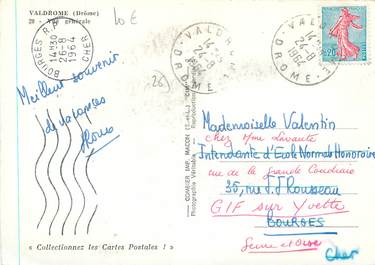 VALDROME (Drôme)
20 - Vue générale
10 €
BOURGES R.P.
14H30
26-8
1964
CHER
VALDROME
14 H
24-8
1964
DROME
VALDROME
14 H
24-8
1964
DROME
0,20
(26)
Meilleur souvenir
de vacances
COMBIER IMP. MACON (S.-et-L.)
Photographie Véritable - Reproduction
Mademoiselle Valentin
chez Mme Lavante
Intendante d'Ecole Normale Honoraire
rue de la grande Coudraie
35, rue J.J Rousseau
GIF sur Yvette
BOURGES
Seine et Oise
Cher
« Collectionnez les Cartes Postales ! »